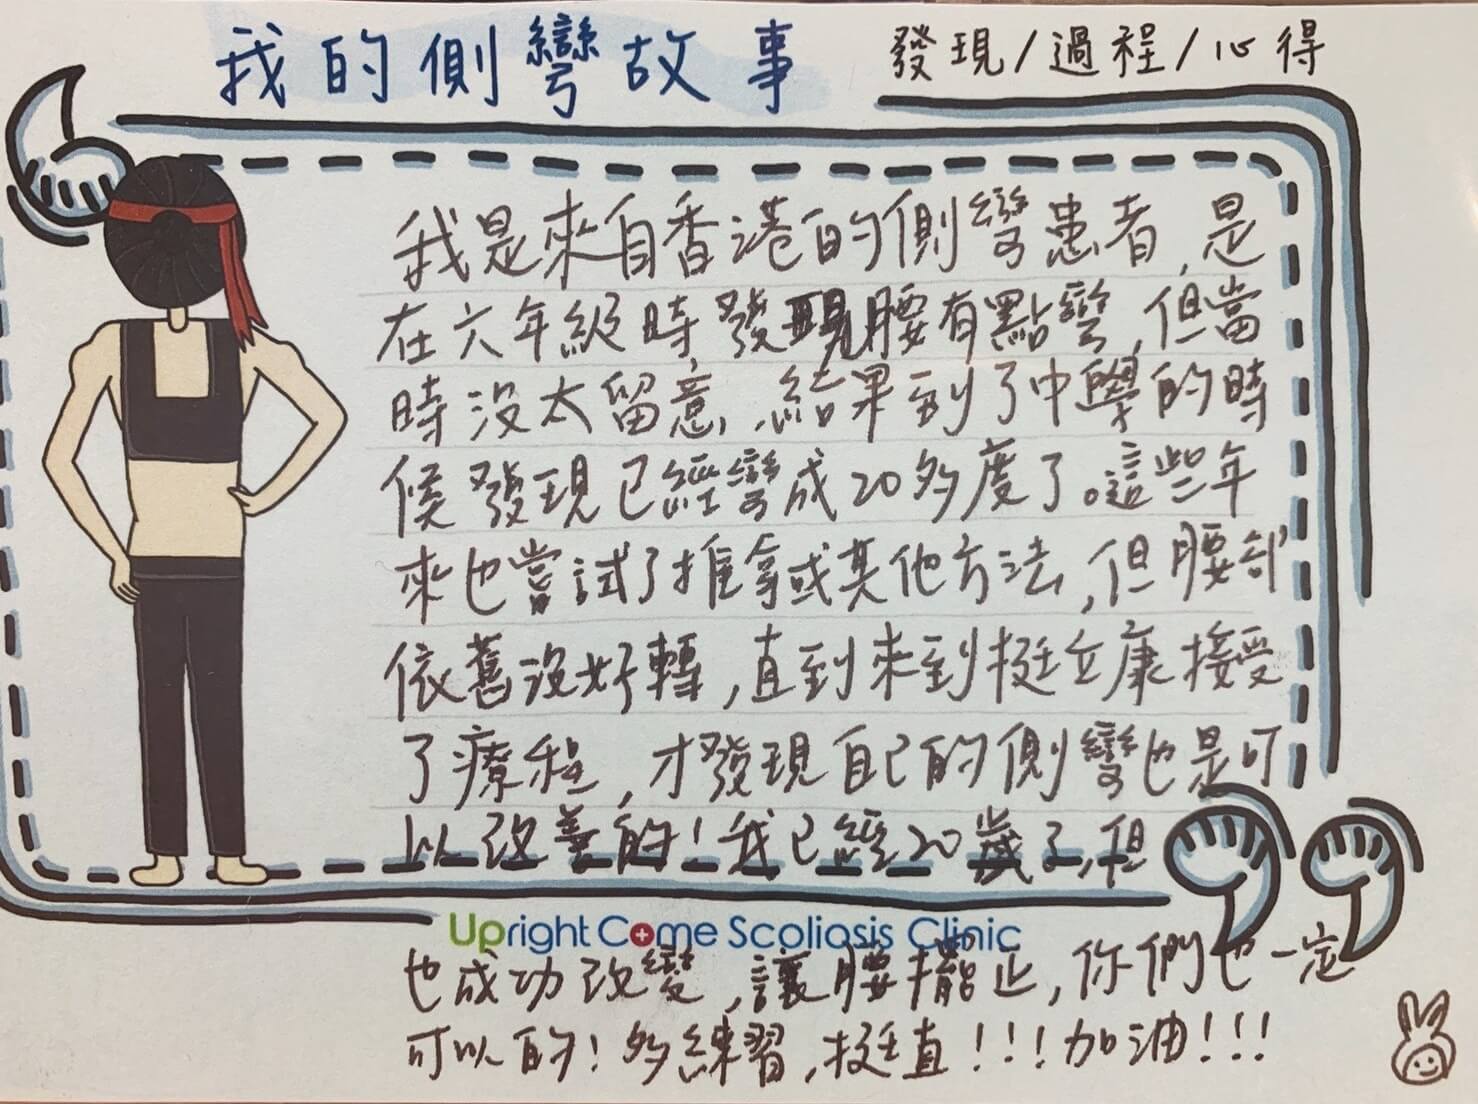 我的側彎故事 發現/過程/心得
我是來自香港的側彎患者,是
在六年級時,發現腰有點彎,但當
時沒太留意,結果到了中學的時
候發現已經彎成20多度了。這些年
來也嘗試了推拿或其他方法,但腰部
依舊沒好轉,直到來到挺立康接受
了療程,才發現自己的側彎也是可
以改善的!我已經20歲了,但
Upright Come Scoliosis Clinic
也成功改變,讓腰擺正,你們也一定
可以的!多練習,挺直!!!加油!!!